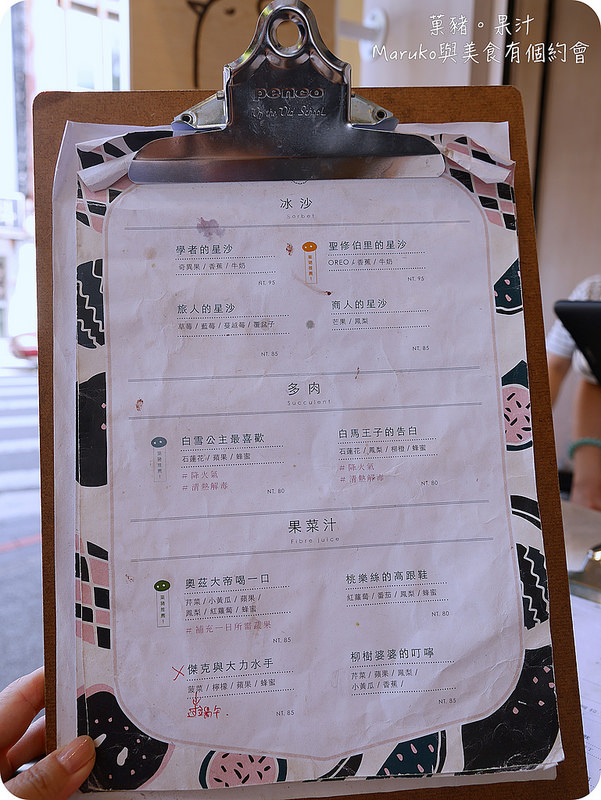 菓豬。果汁
Maruko與美食有個約會
penco
冰沙
Sorbet
學者的星沙
奇異果 / 香蕉 / 牛奶
NT. 95
聖修伯里的星沙
OREO / 香蕉 / 牛奶
NT. 95
旅人的星沙
草莓 / 藍莓 / 蔓越莓 / 覆盆子
NT. 85
商人的星沙
芒果 / 鳳梨
NT. 85
多肉
Succulent
白雪公主最喜歡
石蓮花 / 蘋果 / 蜂蜜
#降火氣
#清熱解毒
NT. 80
白馬王子的告白
石蓮花 / 鳳梨 / 柳橙 / 蜂蜜
#降火氣
#清熱解毒
NT. 80
果菜汁
Fibre juice
奧茲大帝喝一口
芹菜 / 小黃瓜 / 蘋果 /
鳳梨 / 紅蘿蔔 / 蜂蜜
#補充一日所需蔬果
NT. 85
桃樂絲的高跟鞋
紅蘿蔔 / 番茄 / 鳳梨 / 蜂蜜
NT. 80
傑克與大力水手
菠菜 / 檸檬 / 蘋果 / 蜂蜜
NT. 85
柳樹婆婆的叮嚀
芹菜 / 蘋果 / 鳳梨 /
小黃瓜 / 香蕉 /
NT. 85